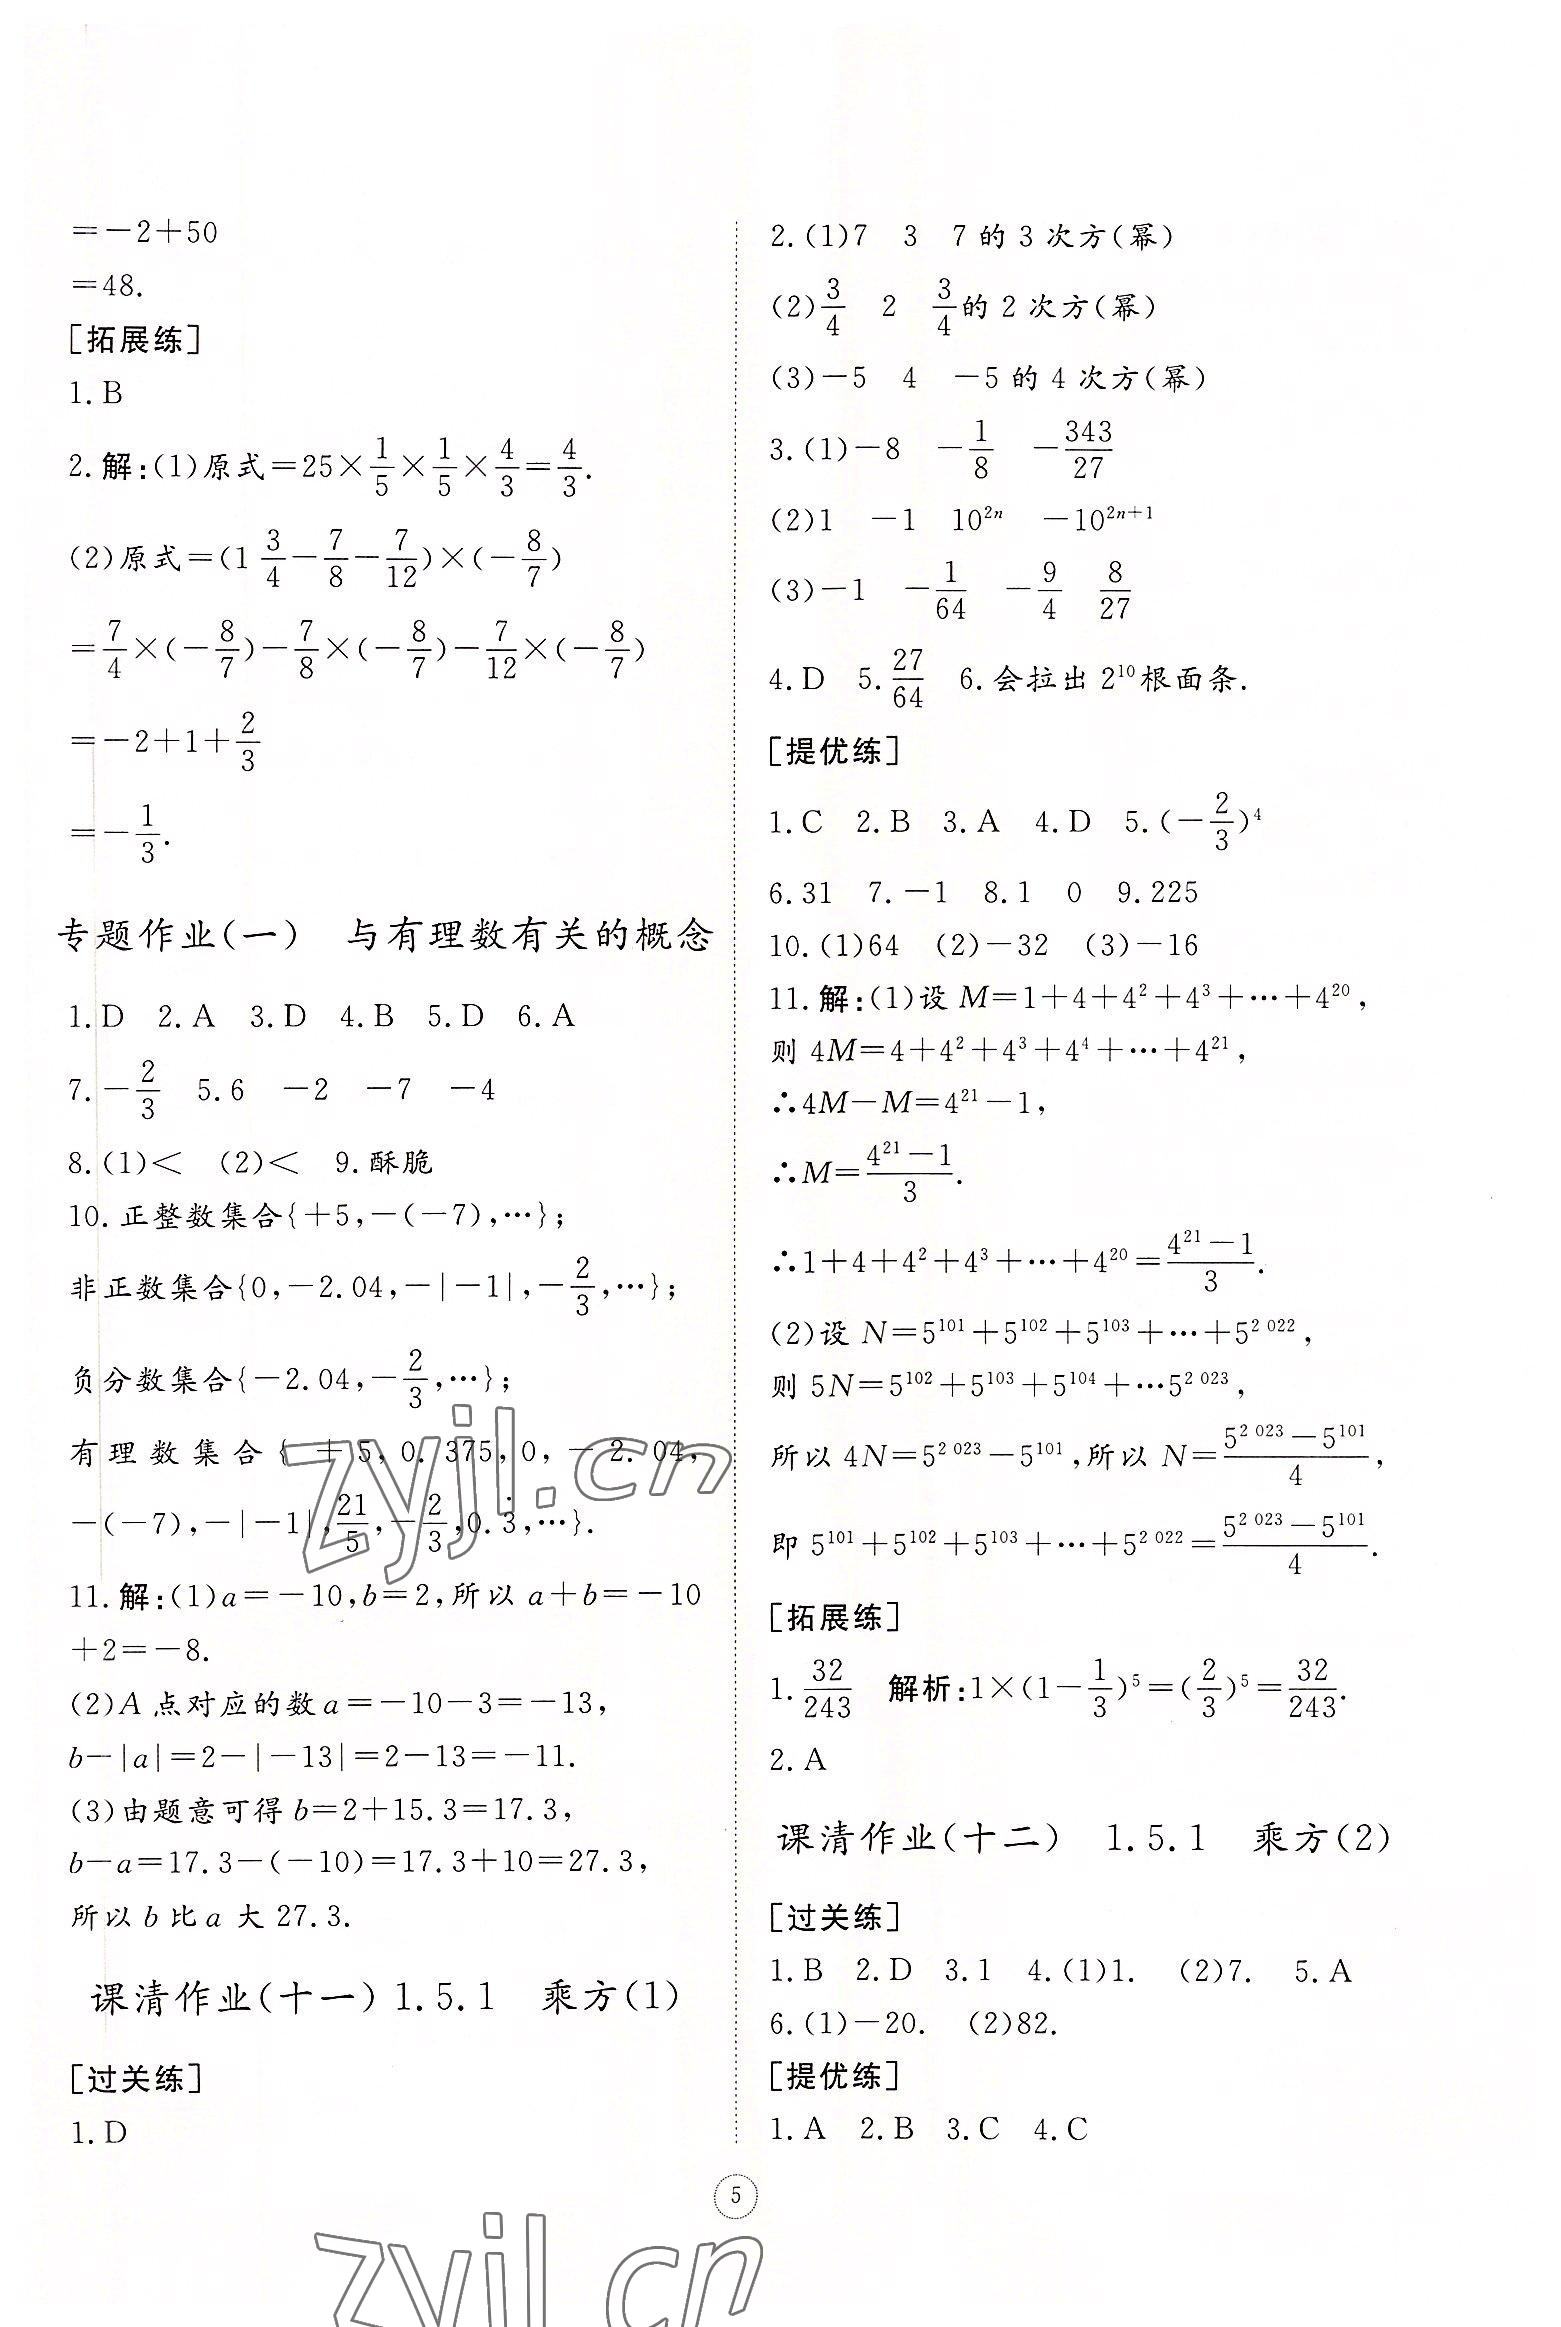 =-2+50
=48.
[拓展练]
1.B
2.解:(1)原式=25×1/5×1/5×4/3=4/3.
(2)原式=(1 3/4-7/8-7/12)×(-8/7)
=7/4×(-8/7)-7/8×(-8/7)-7/12×(-8/7)
=-2+1+2/3
=-1/3.
专题作业(一) 与有理数有关的概念
1.D 2.A 3.D 4.B 5.D 6.A
7.-2/3 5.6 -2 -7 -4
8.(1)< (2)< 9.酥脆
10.正整数集合{+5,-(-7),…};
非正数集合{0,-2.04,-|-1|,-2/3,…};
负分数集合{-2.04,-2/3,…};
有理数集合{+5,0.375,0,-2.04,
-(-7),-|-1|,21/5,-2/3,0.3̇,…}.
11.解:(1)a=-10,b=2,所以a+b=-10
+2=-8.
(2)A点对应的数a=-10-3=-13,
b-|a|=2-|-13|=2-13=-11.
(3)由题意可得b=2+15.3=17.3,
b-a=17.3-(-10)=17.3+10=27.3,
所以b比a大27.3.
课清作业(十一)1.5.1 乘方(1)
[过关练]
1.D
2.(1)7 3 7的3次方(幂)
(2)3/4 2 3/4的2次方(幂)
(3)-5 4 -5的4次方(幂)
3.(1)-8 -1/8 -343/27
(2)1 -1 10²ⁿ -10²ⁿ⁺¹
(3)-1 -1/64 -9/4 8/27
4.D 5.27/64 6.会拉出2¹⁰根面条.
[提优练]
1.C 2.B 3.A 4.D 5.(-2/3)⁴
6.31 7.-1 8.1 0 9.225
10.(1)64 (2)-32 (3)-16
11.解:(1)设M=1+4+4²+4³+…+4²⁰,
则4M=4+4²+4³+4⁴+…+4²¹,
∴4M-M=4²¹-1,
∴M=(4²¹-1)/3.
∴1+4+4²+4³+…+4²⁰=(4²¹-1)/3.
(2)设N=5¹⁰¹+5¹⁰²+5¹⁰³+…+5² ⁰²²,
则5N=5¹⁰²+5¹⁰³+5¹⁰⁴+…5² ⁰²³,
所以4N=5² ⁰²³-5¹⁰¹,所以N=(5² ⁰²³-5¹⁰¹)/4,
即5¹⁰¹+5¹⁰²+5¹⁰³+…+5² ⁰²²=(5² ⁰²³-5¹⁰¹)/4.
[拓展练]
1.32/243 解析:1×(1-1/3)⁵=(2/3)⁵=32/243.
2.A
课清作业(十二) 1.5.1 乘方(2)
[过关练]
1.B 2.D 3.1 4.(1)1. (2)7. 5.A
6.(1)-20. (2)82.
[提优练]
1.A 2.B 3.C 4.C
5
zyjl.cn
zyjl.cn